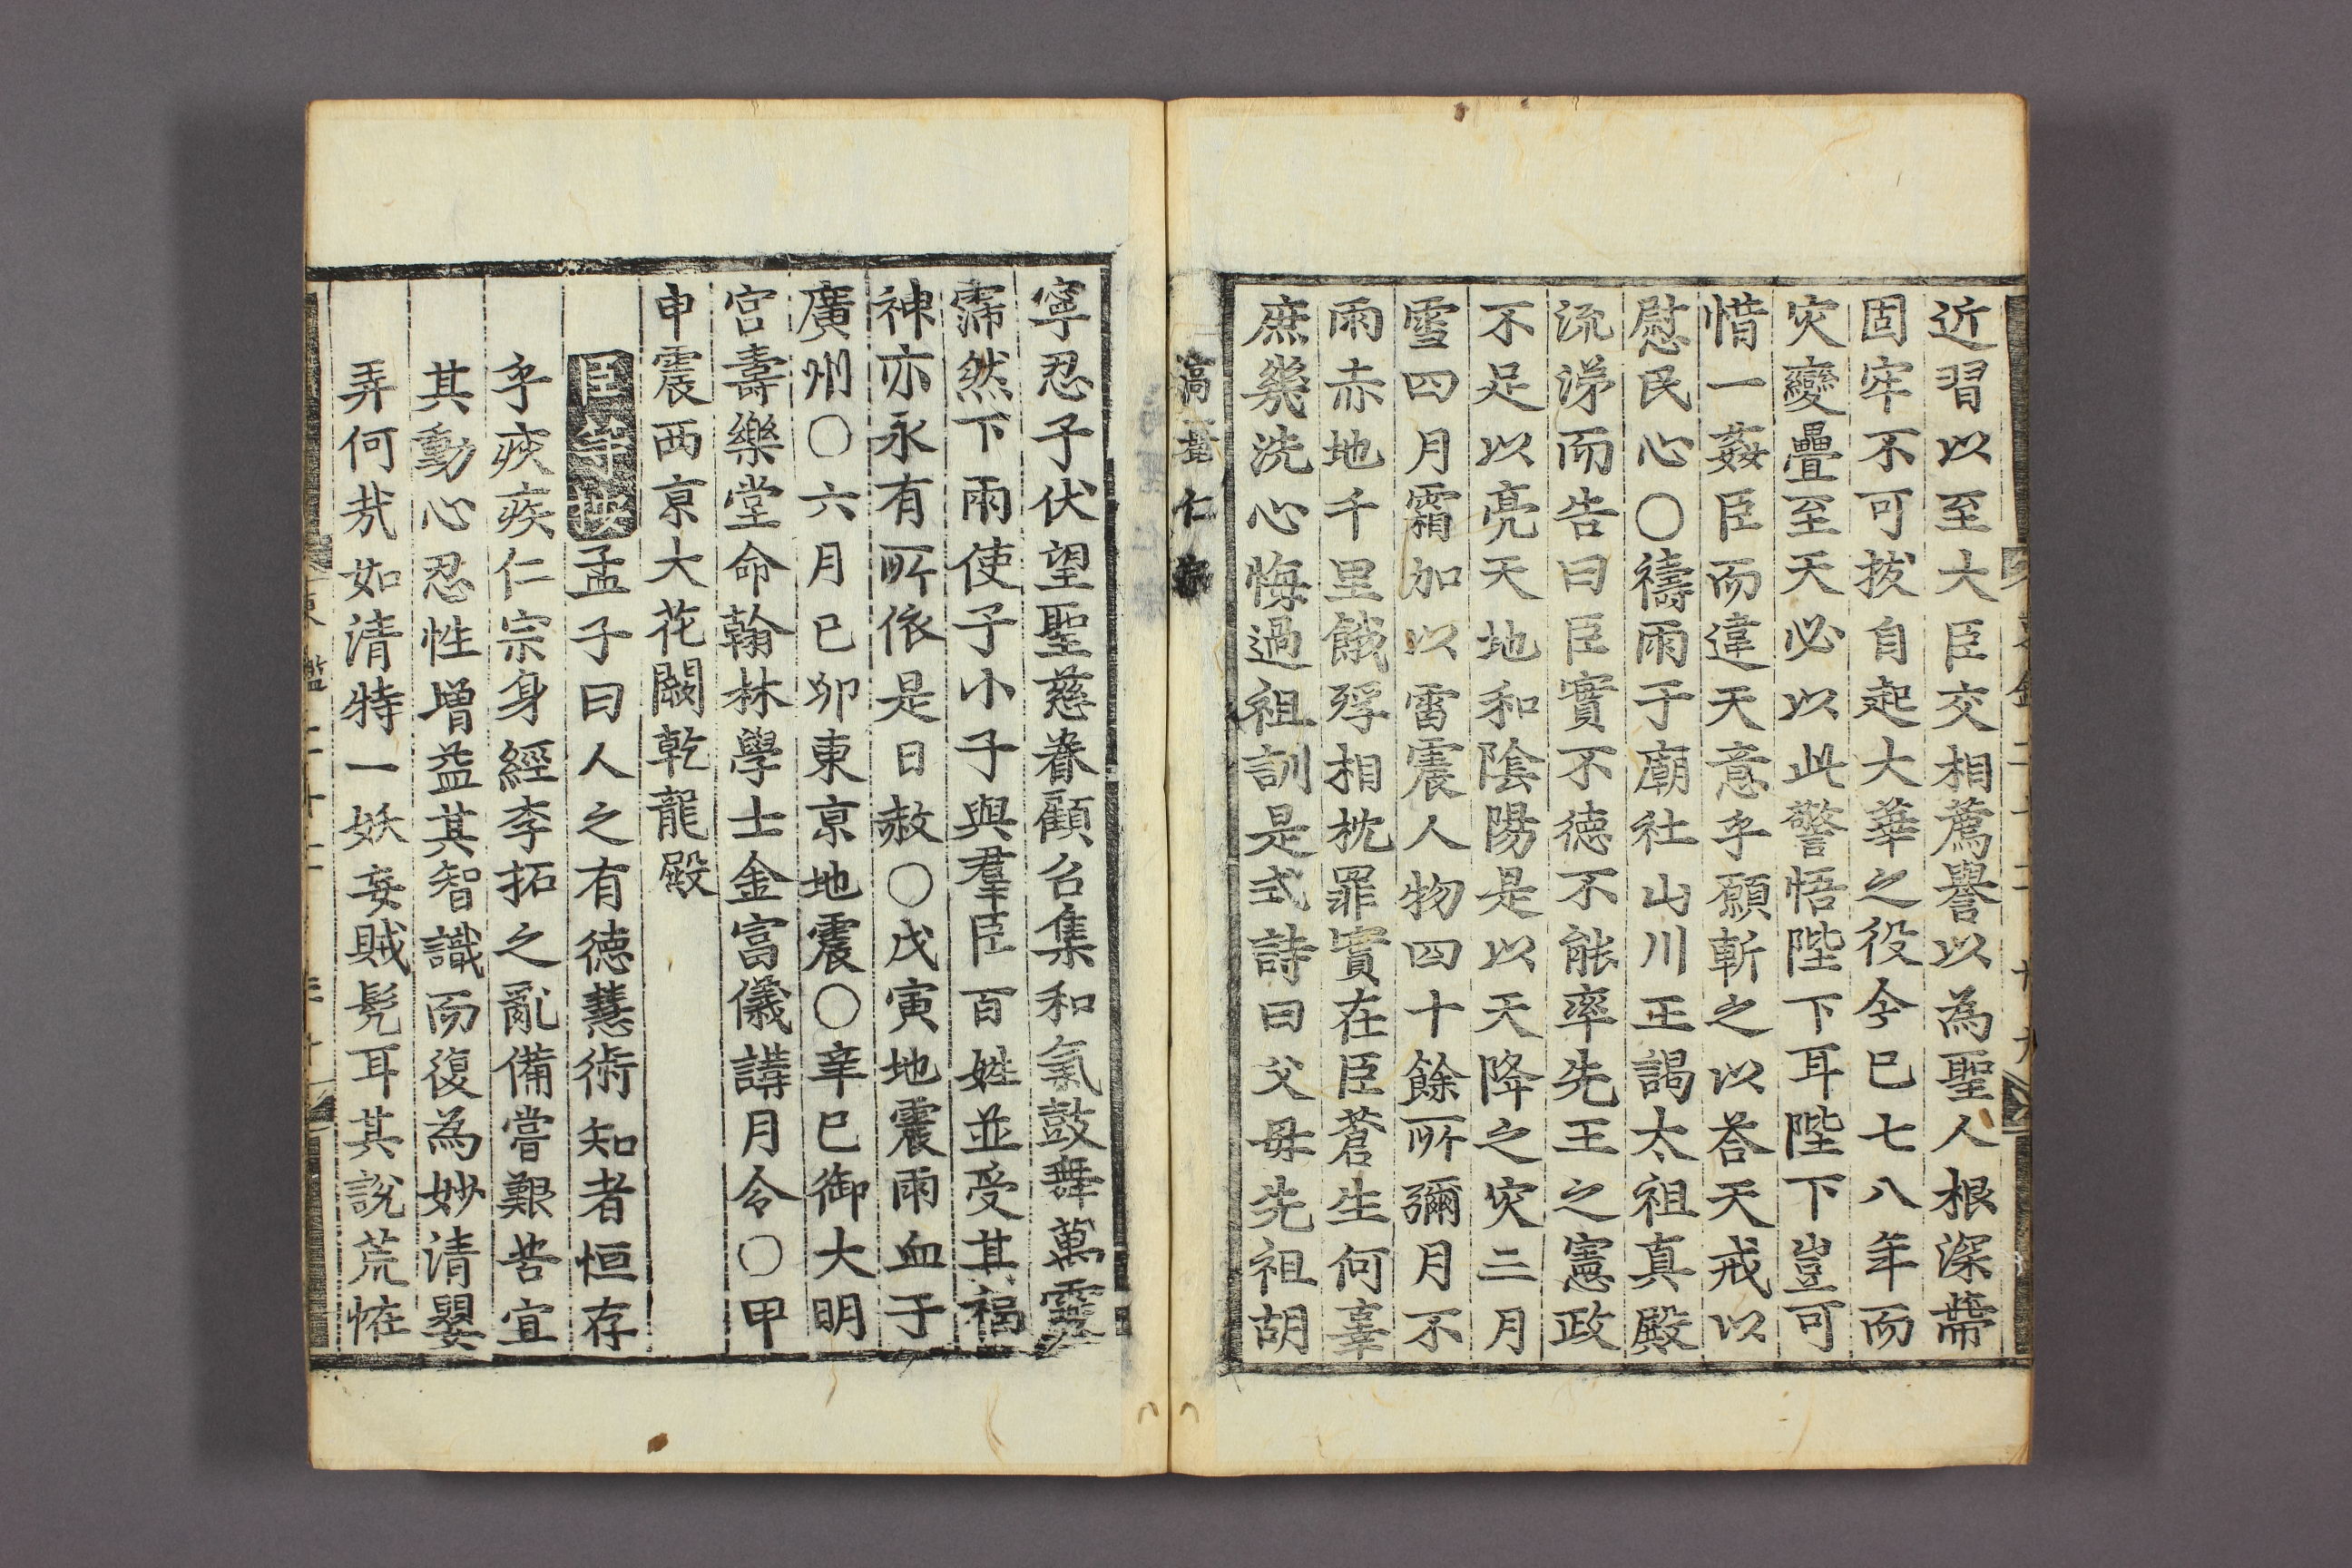 近習以至大臣交相薦譽以為聖人根深蔕
固牢不可拔自起大華之役今已七八年而
灾變疊至天必以此警悟陛下耳陛下豈可
惜一姦臣而違天意乎願斬之以荅天戒以
慰民心○禱雨于廟社山川王謁太祖真殿
流涕而告曰臣實不德不能率先王之憲政
不足以亮天地和陰陽是以天降之灾三月
雪四月霜加以雷震人物四十餘所彌月不
雨赤地千里餓殍相枕罪實在臣蒼生何辜
庶幾洗心悔過祖訓是式詩曰父母先祖胡
寧忍予伏望聖慈眷顧台集和氣鼓舞萬靈
霈然下雨使予小子與羣臣百姓並受其福
神亦永有所依是日赦○戊寅地震雨血于
廣州○六月己卯東京地震○辛巳御大明
宮壽樂堂命翰林學士金富儀講月令○甲
申震西京大花闕乾龍殿
孟子曰人之有德慧術知者恒存
乎疢疾仁宗身經李拓之亂備嘗艱苦宜
其動心忍性增益其智識而復為妙清嬰
弄何㢤如清特一妖妄賊髡耳其說荒恠